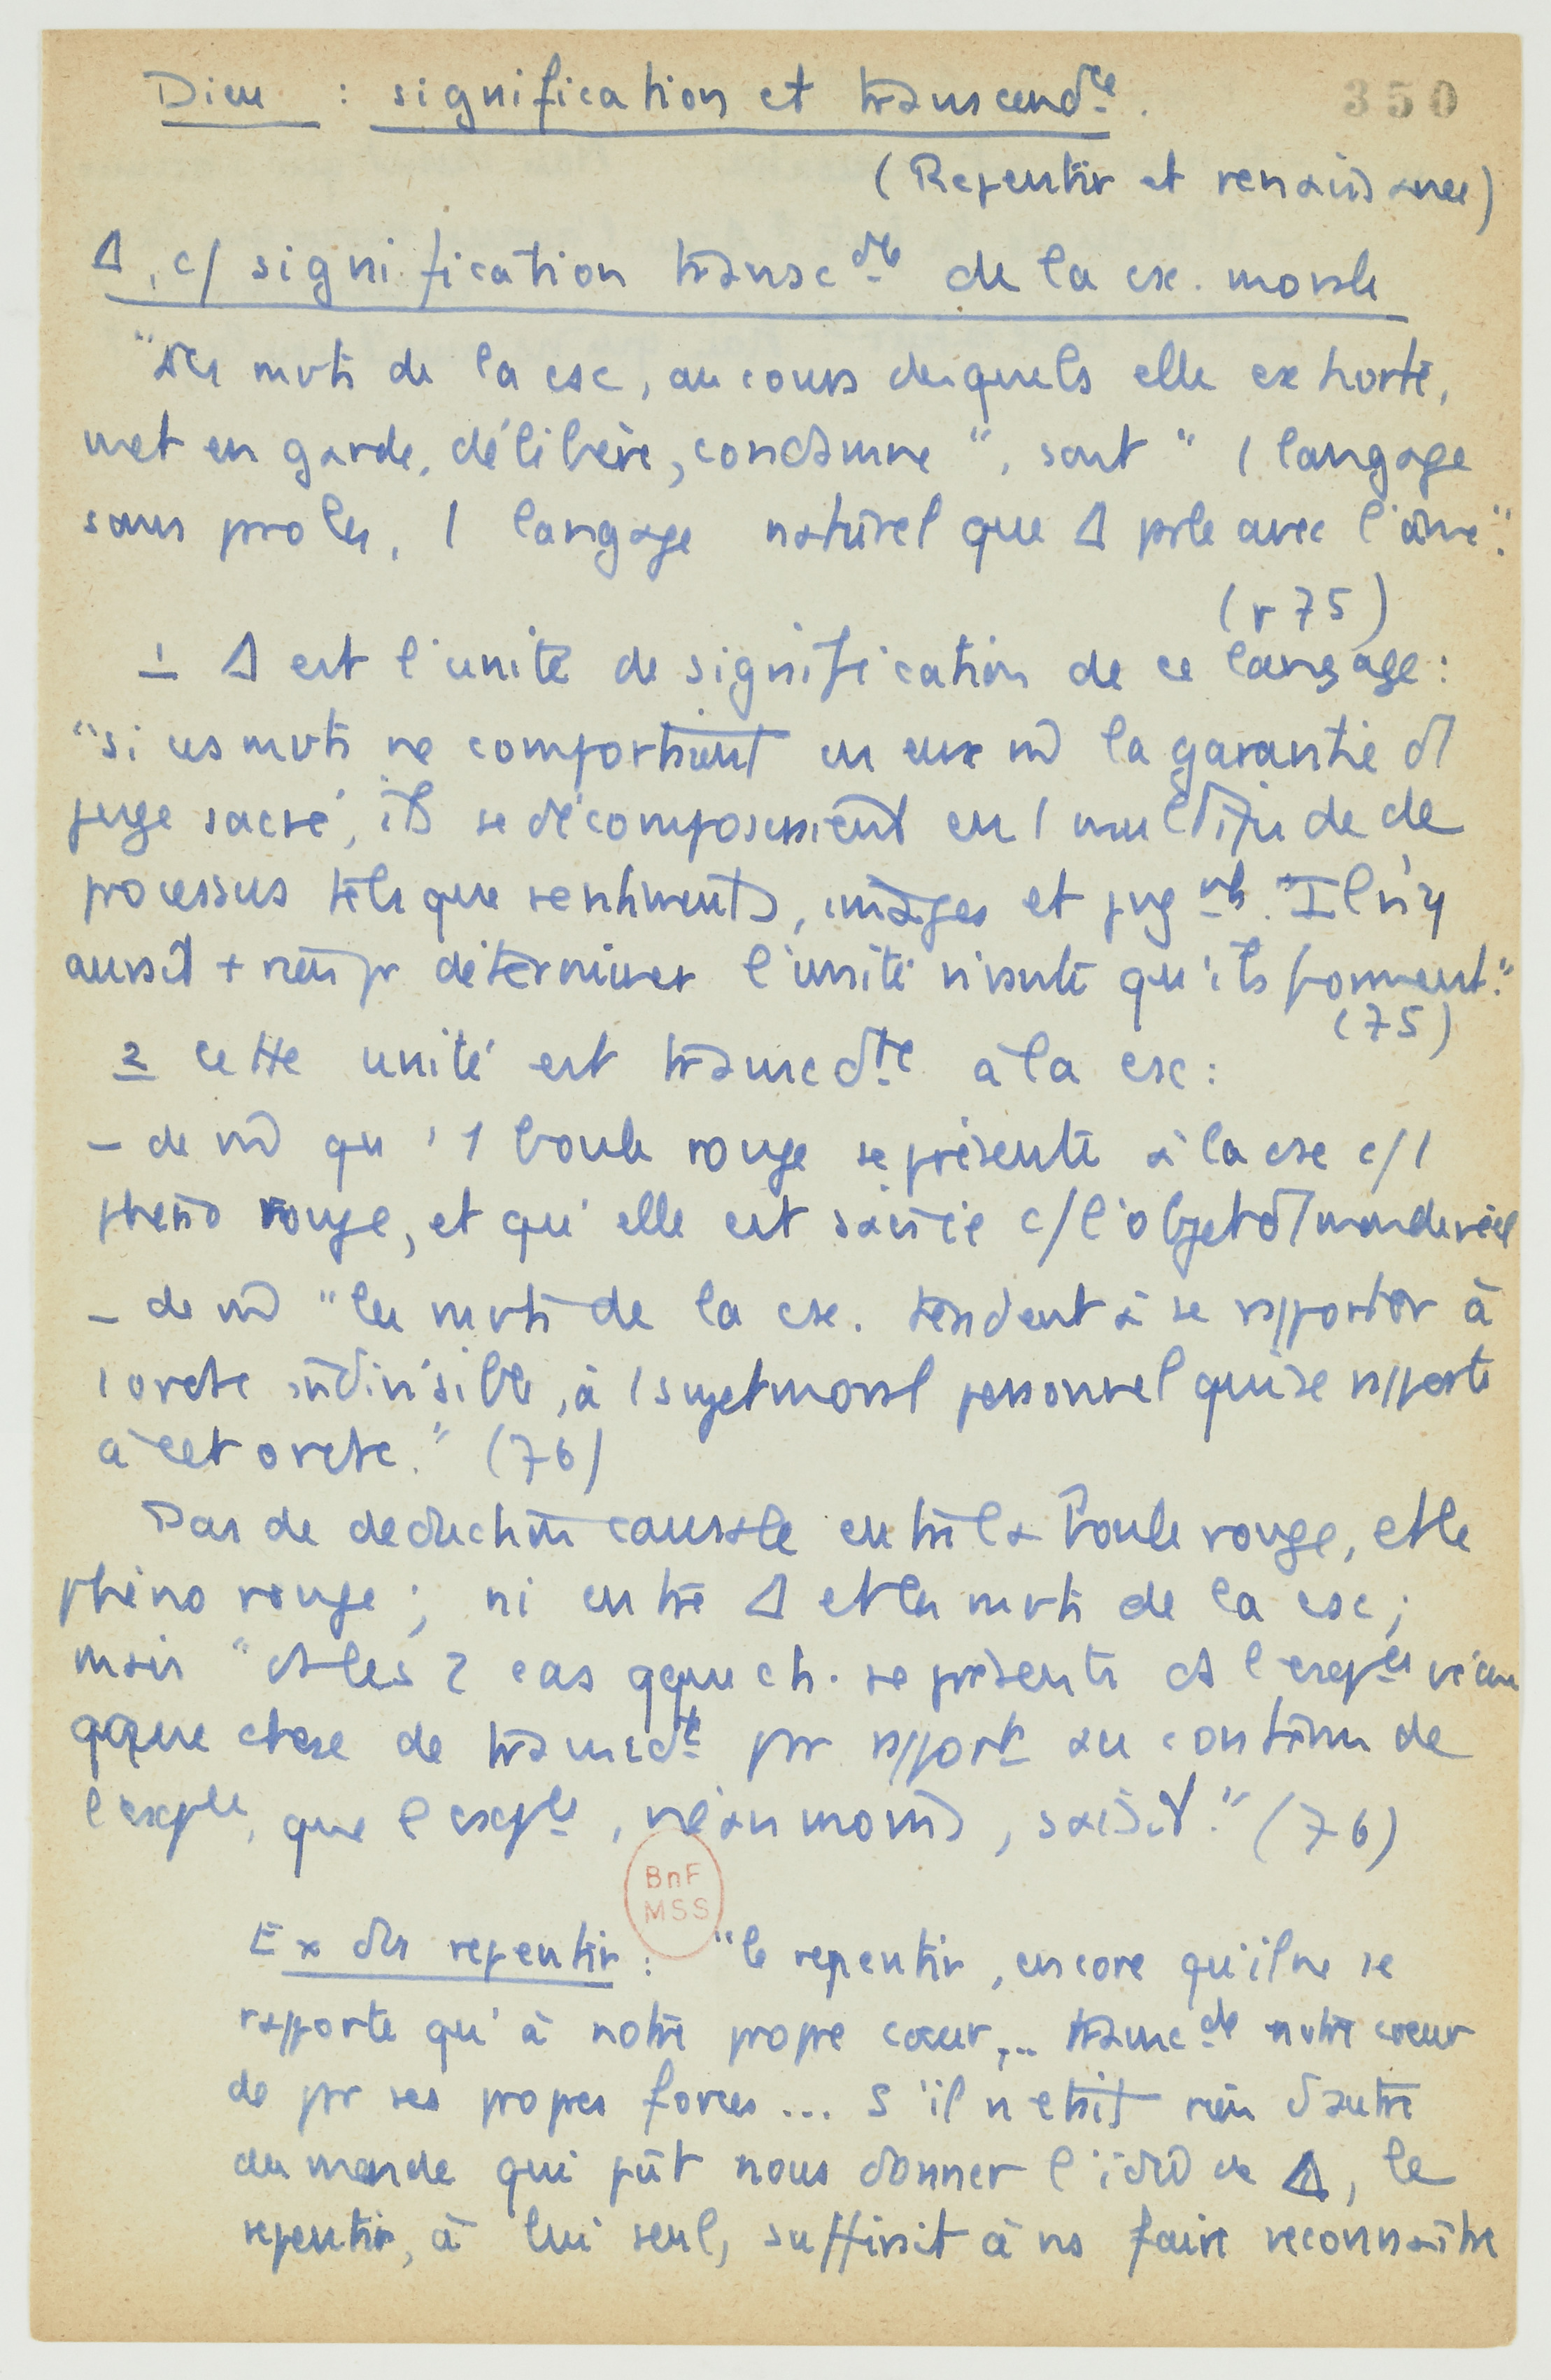 Dieu : signification et transcendce.
350
(Repentir et renaissance)
Δ, c/ signification transcdte de la csc. morale
"Les mvts de la csc, au cours desquels elle exhorte,
met en garde, délibère, condamne", sont "1 langage
sans proles, 1 langage naturel que Δ prle avec l'âme".
(r 75)
1 Δ est l'unité de signification de ce langage :
"si ces mvts ne comportaient en eux m̂ la garantie d'1
juge sacré, ils se décomposeraient en 1 multitude de
processus tels que sentiments, images et jugmts. Il n'y
aurait + rien pr déterminer l'unité visuute qu'ils forment."
(75)
2 cette unité est transcdte à la csc :
– de m̂ qu'1 boule rouge se présente à la csc c/ 1
phéno rouge, et qu'elle est saisie c/ l'objet d'1 monde réel
– de m̂ "les mvts de la csc. tendent à se rapporter à
1 ordre indivisible, à 1 sujet moral personnel qui se rapporte
à cet ordre." (76)
Pas de déduction causale entre la boule rouge, et le
phéno rouge ; ni entre Δ et les mvts de la csc ;
mais "ds les 2 cas qque ch. se présente ds l'expce vécue
qque chose de transcdt pr rapport au contenu de
l'expce, que l'expce, néanmoins, saisit." (76)
BnF
MSS
Ex du repentir : "le repentir, encore qu'il ne se
rapporte qu'à notre propre cœur,... transcde notre cœur
de pr ses propres forces ... S'il n'était rien d'autre
au monde qui pût nous donner l'idée de Δ, le
repentir, à lui seul, suffirait à ns faire reconnaître